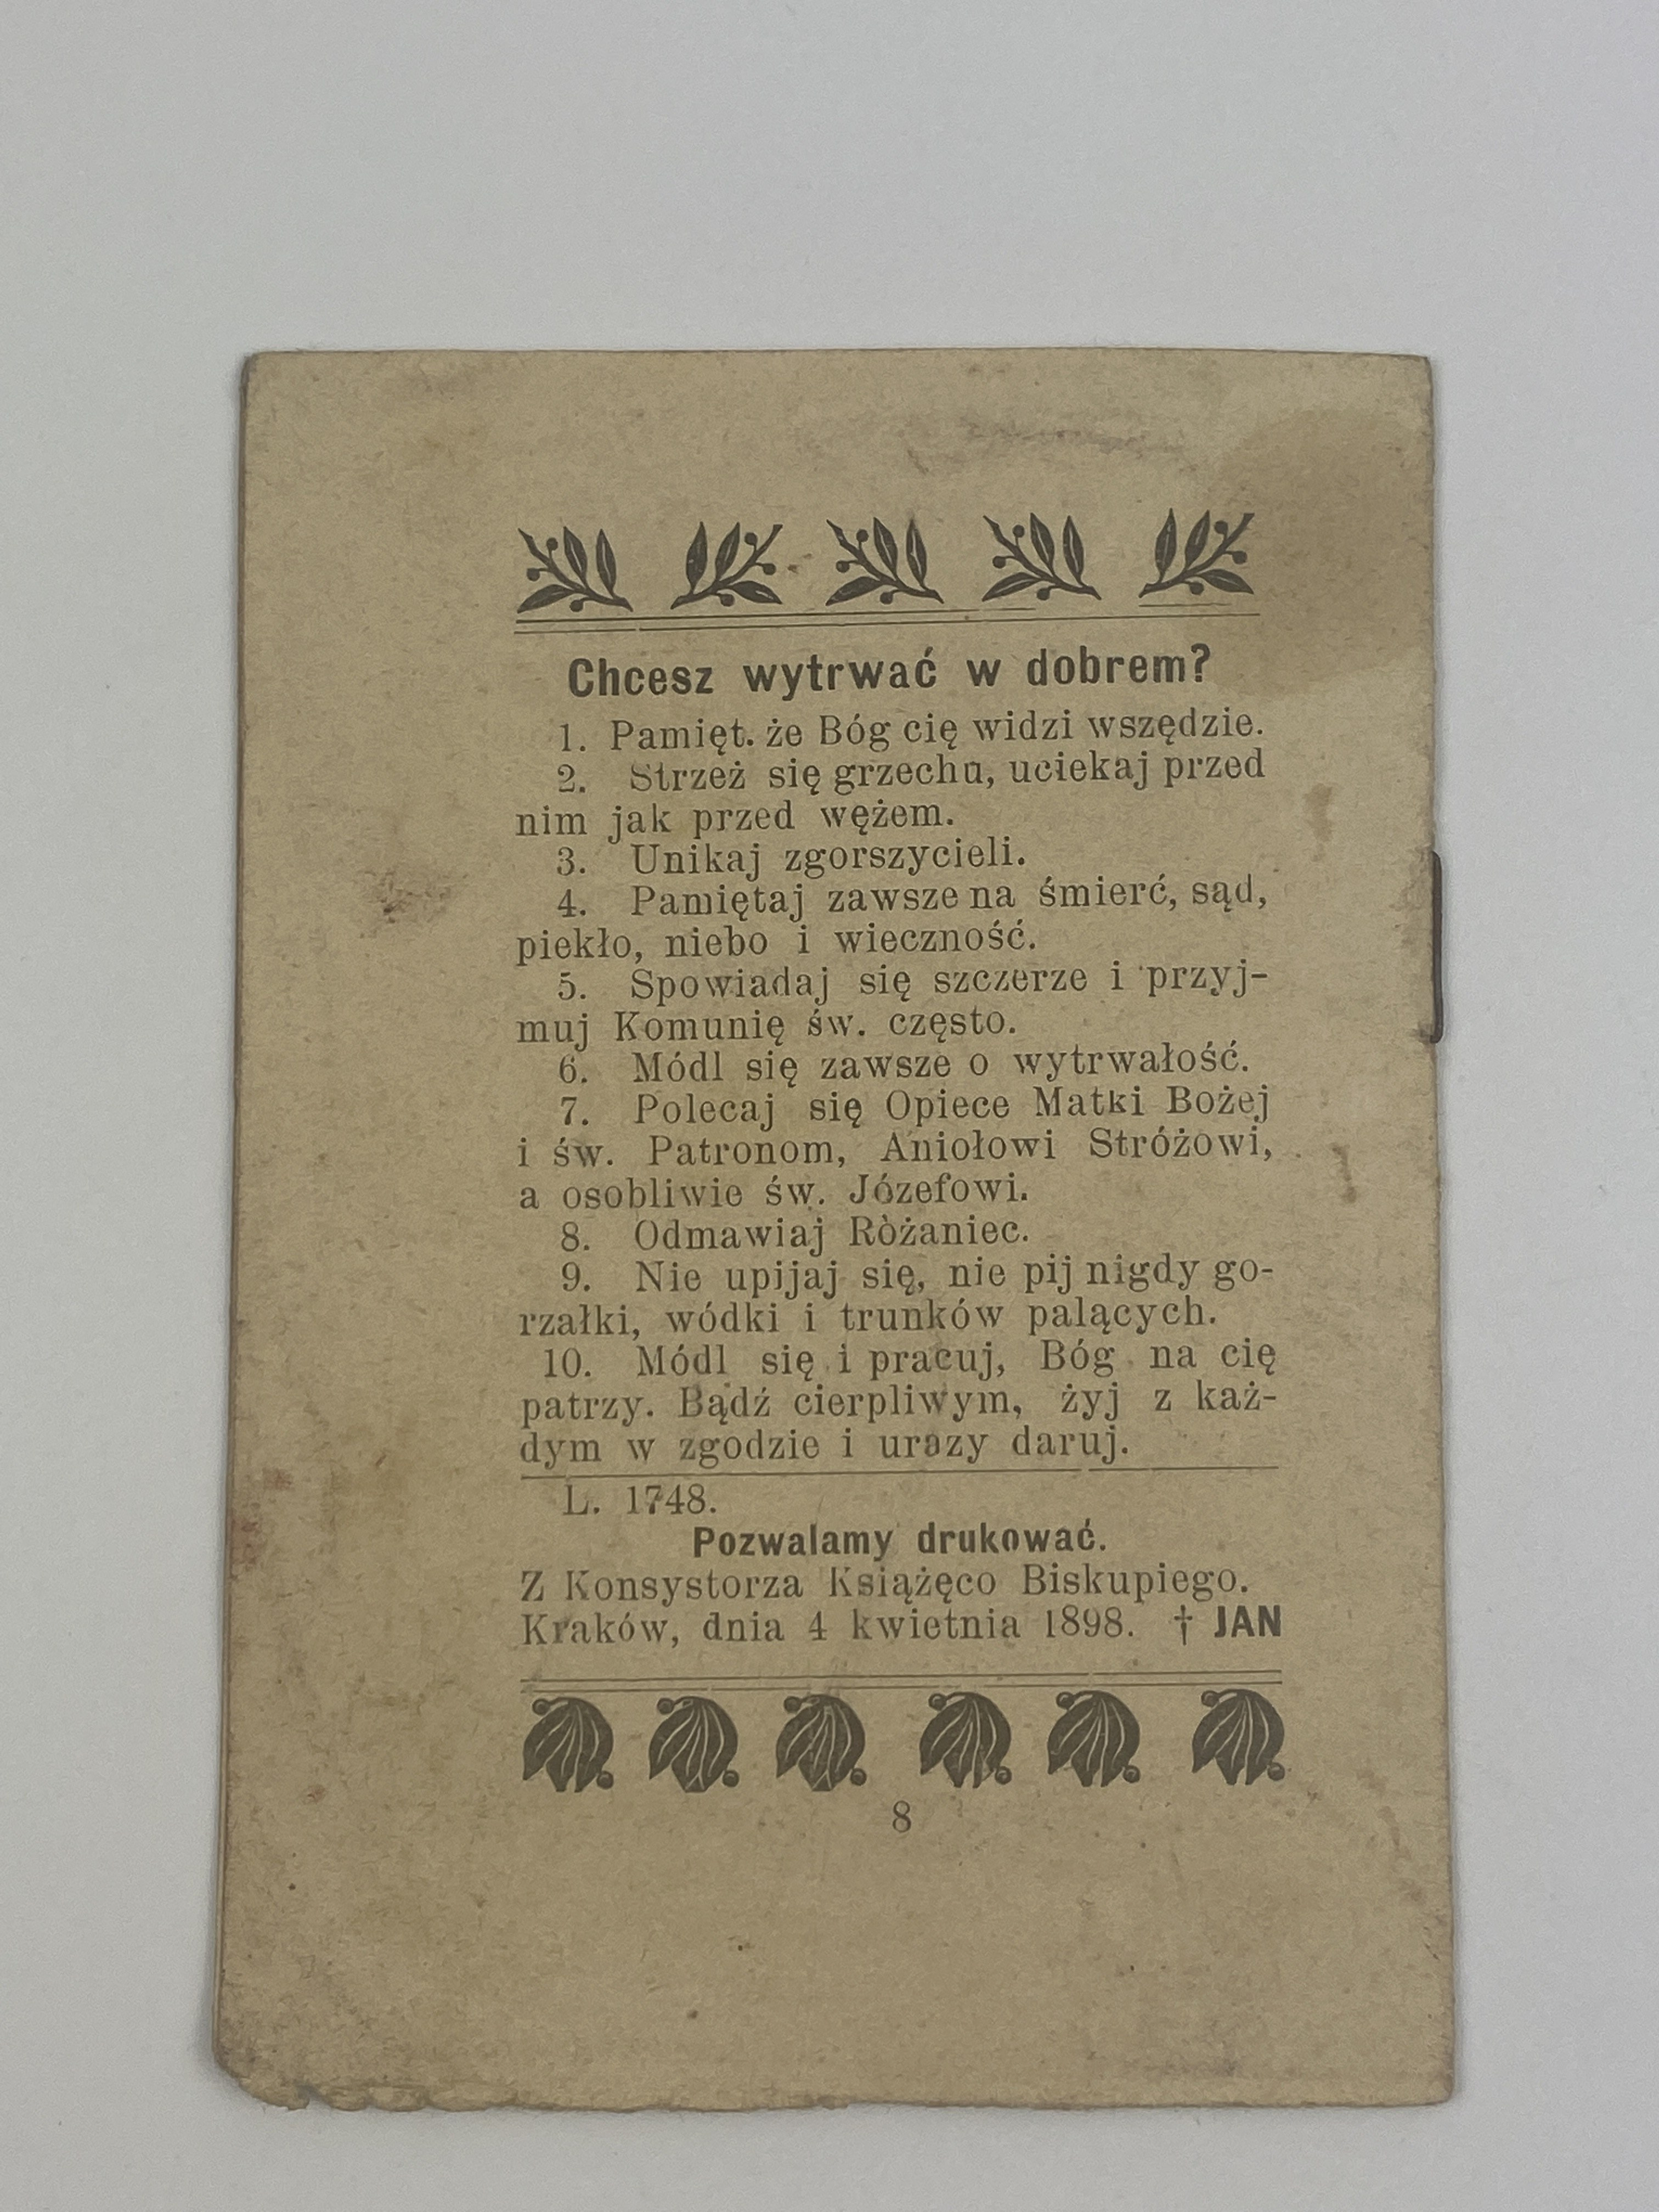 Chcesz wytrwać w dobrem?
1. Pamięt. że Bóg cię widzi wszędzie.
2. Strzeż się grzechu, uciekaj przed
nim jak przed wężem.
3. Unikaj zgorszycieli.
4. Pamiętaj zawsze na śmierć, sąd,
piekło, niebo i wieczność.
5. Spowiadaj się szczerze i przyj-
muj Komunię św. często.
6. Módl się zawsze o wytrwałość.
7. Polecaj się Opiece Matki Bożej
i św. Patronom, Aniołowi Stróżowi,
a osobliwie św. Józefowi.
8. Odmawiaj Ròżaniec.
9. Nie upijaj się, nie pij nigdy go-
rzałki, wódki i trunków palących.
10. Módl się i pracuj, Bóg na cię
patrzy. Bądź cierpliwym, żyj z każ-
dym w zgodzie i urazy daruj.
L. 1748.
Pozwalamy drukować.
Z Konsystorza Książęco Biskupiego.
Kraków, dnia 4 kwietnia 1898. † JAN
8